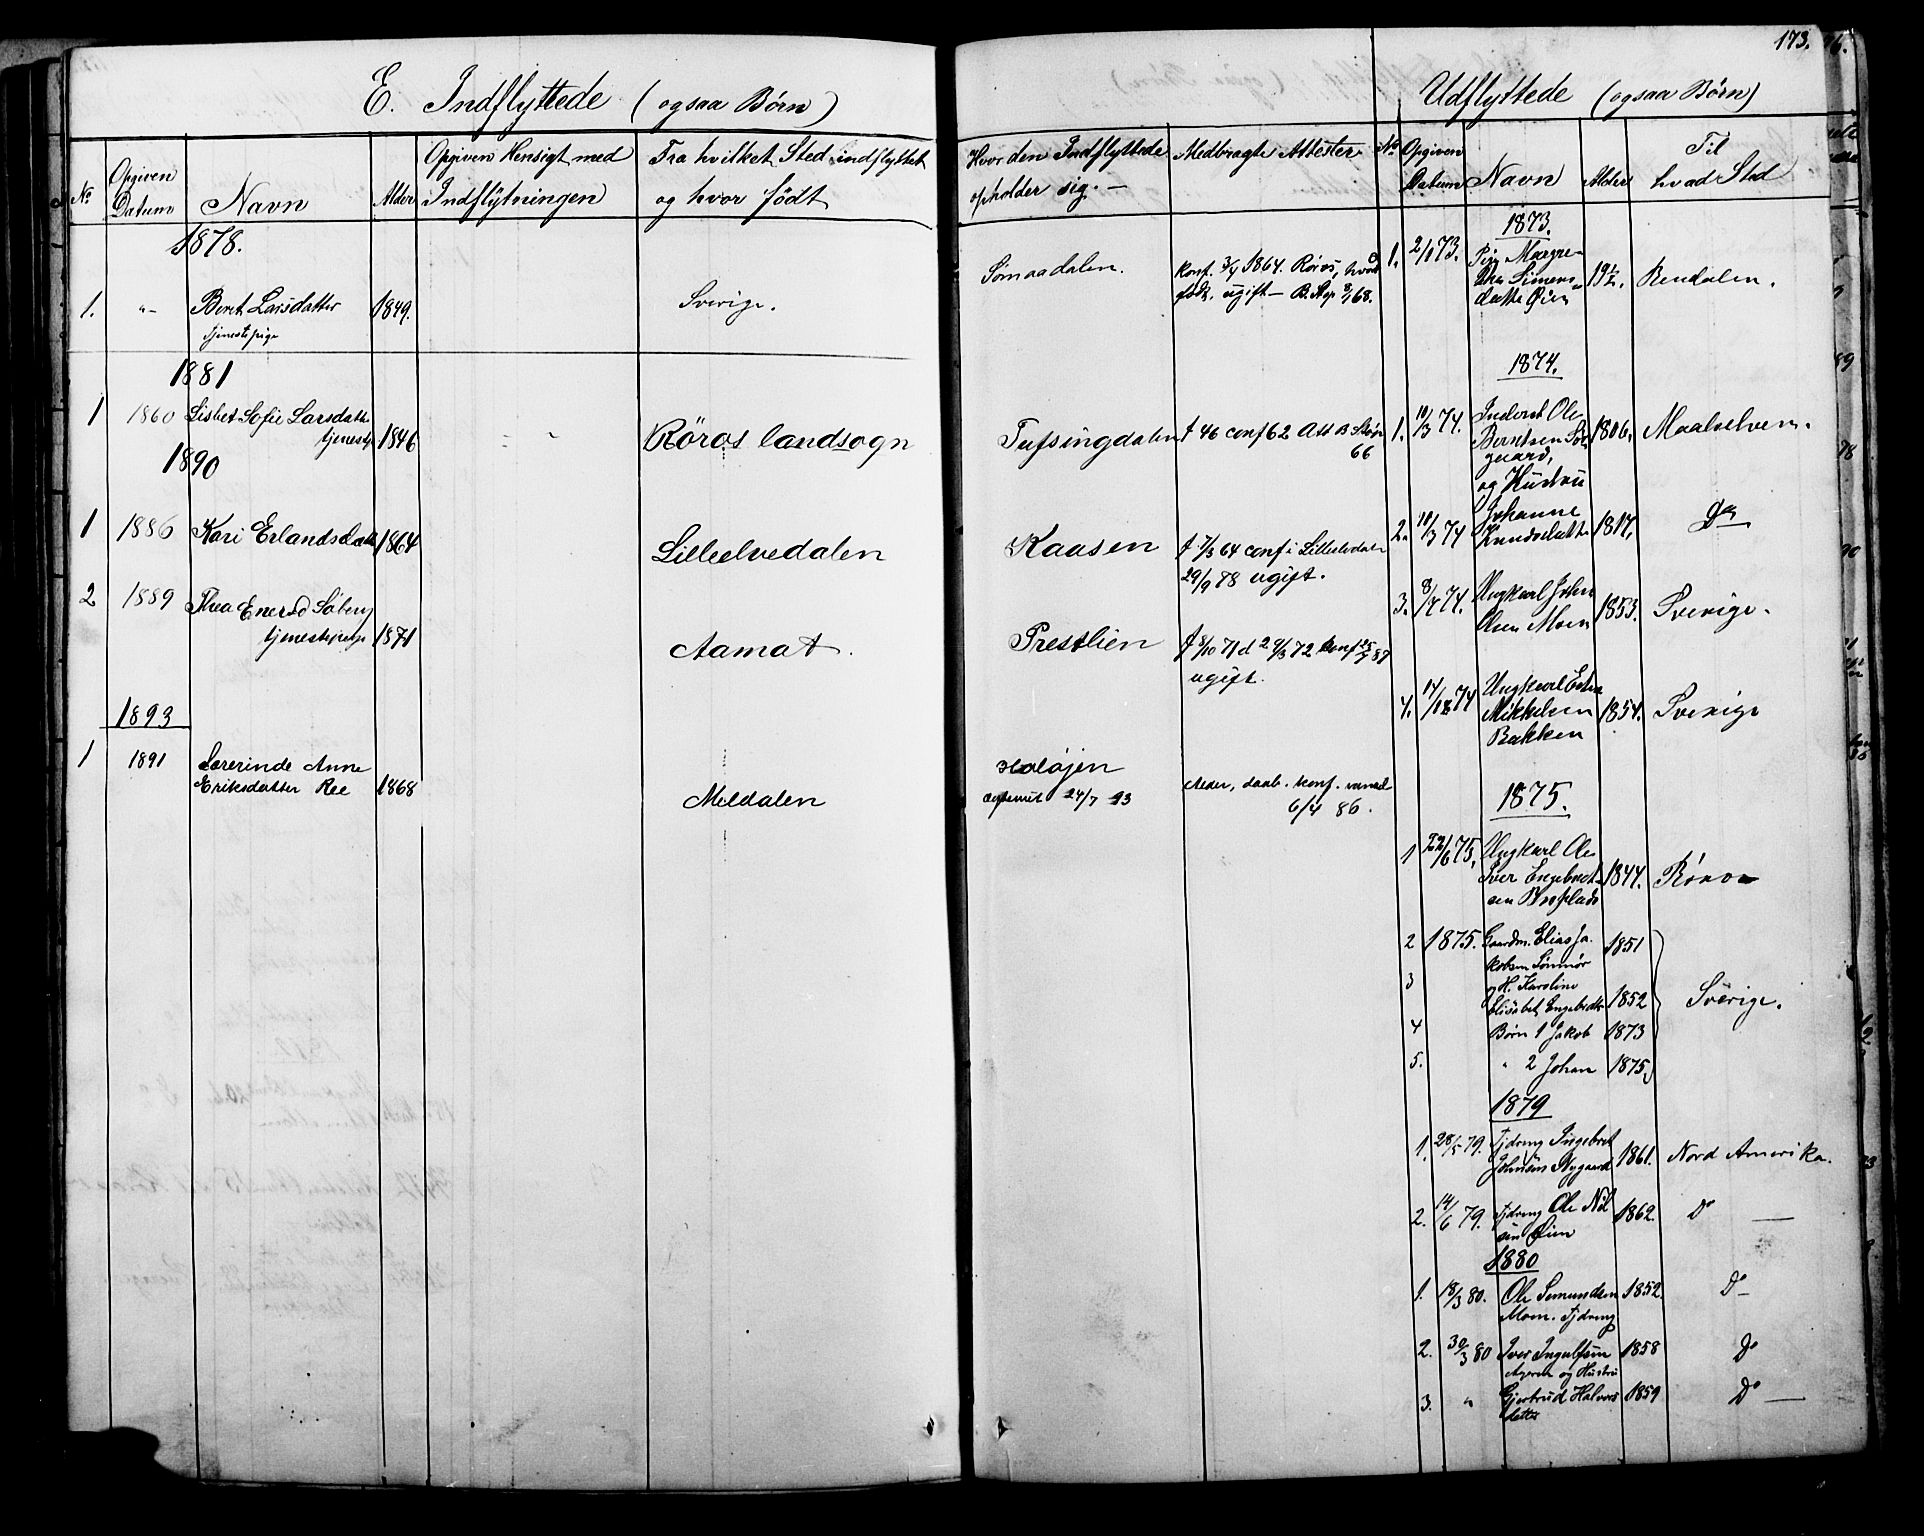 E. Indflyttede (ogsaa Børn)
No
Opgiven Datum
Navn
Alder
Opgiven Hensigt med Indflytningen
Fra hvilket Sted indflyttet og hvor født
1878.
1. "– Beret Larsdatter 1849. Sverige.
tjenestepige
1881
1 1860 Lisbet Sofie Larsdatt 1846 " " Röros landsogn
tjenestp
1890
1 1886 Kari Erlandsdatt 1864 Lilleelvedalen
2 1889 Thea Enersd Søberg
tjenestepige 1871 Aamot.
1893
1 1891 Lærerinde Anne
Eriksdatter Ree 1868 Meldalen
173.
Hvor den Indflyttede opholder sig. –
Medbragte Attester
Sømaadalen.
Konf. 3/4 1864. Røros, hvor
født, ugift –
Tufsingdalen f 46 conf 62 Att B
66
Kaasen f. 7/3 64 conf i Lilleelvdalen
29/9 78 ugift.
Prestlien f 8/10 71 d 2 4/3 72 konf 25/9 87
ugift.
24/7 93
daab. konf.
6/4 86.
Udflyttede (ogsaa Børn)
No
Opgiven Datum
Navn
Alder
Til hvad Sted
1873.
1. 2/1 73. Pige Maegre-
the Simens-
datter Øien 19 1/2. Rendalen.
1874.
1. 10/3 74. Inderst Ole
Berntsen
gaard, 1806. Maalselven.
og Hustru
2. 10/3 74 Johanne
Knudsdatt 1817. Do
3. 8/4 74. Ungkarl John
Olsen Moen 1853. Sverige.
4. Ungkarl
Mikkelsen 1854. Sverige
Bakken
1875.
1 22/6 75. Ungkarl Ole
Iver Engebret- 1844. Røros
sen
2 1875. Gaardm. Elias Ja- 1851
kobsen Sømmør
3 og H. Karoline
Elisabet Engebrdtr 1852 Sverige.
4 Børn 1 Jakob 1873
5. " 2 Johan 1875.
1879
1. 28/5 79. Fjdreng Ingebret
Johnsen Nygaard 1861. Nord Amerika.
2. 14/6 79. Fjdreng Ole Nil
sen Øien 1862. Do —
1880
1. 18/3 80. Ole Simundsen 1852. Do –
Moen. Fjdreng
2. 30/3 80 Iver Ingulfsen 1858 Do
og Hustru
3. " Gjertrud Halvors 1859 Do —
datter